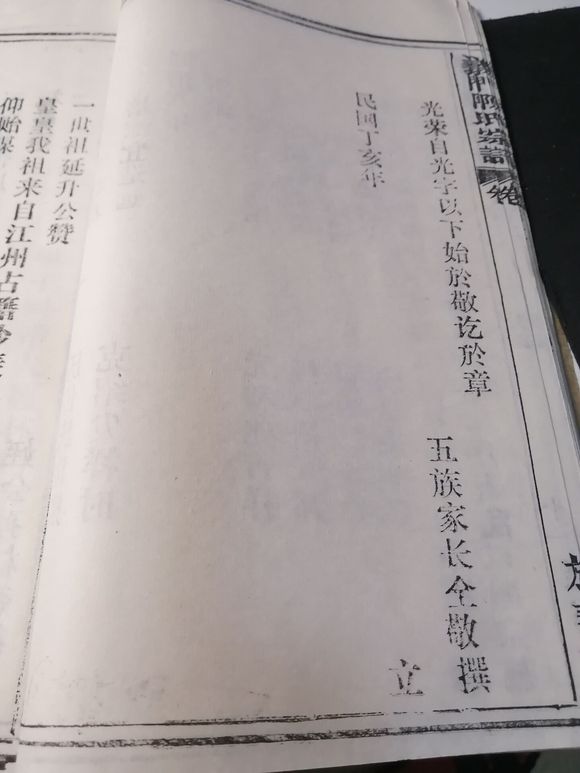 義門陳氏宗譜
卷
光荣自光字以下始於敬讫於章
五族家长仝敬撰
立
民囯丁亥年
一世祖延升公赞
皇皇我祖来自江州古
仰始